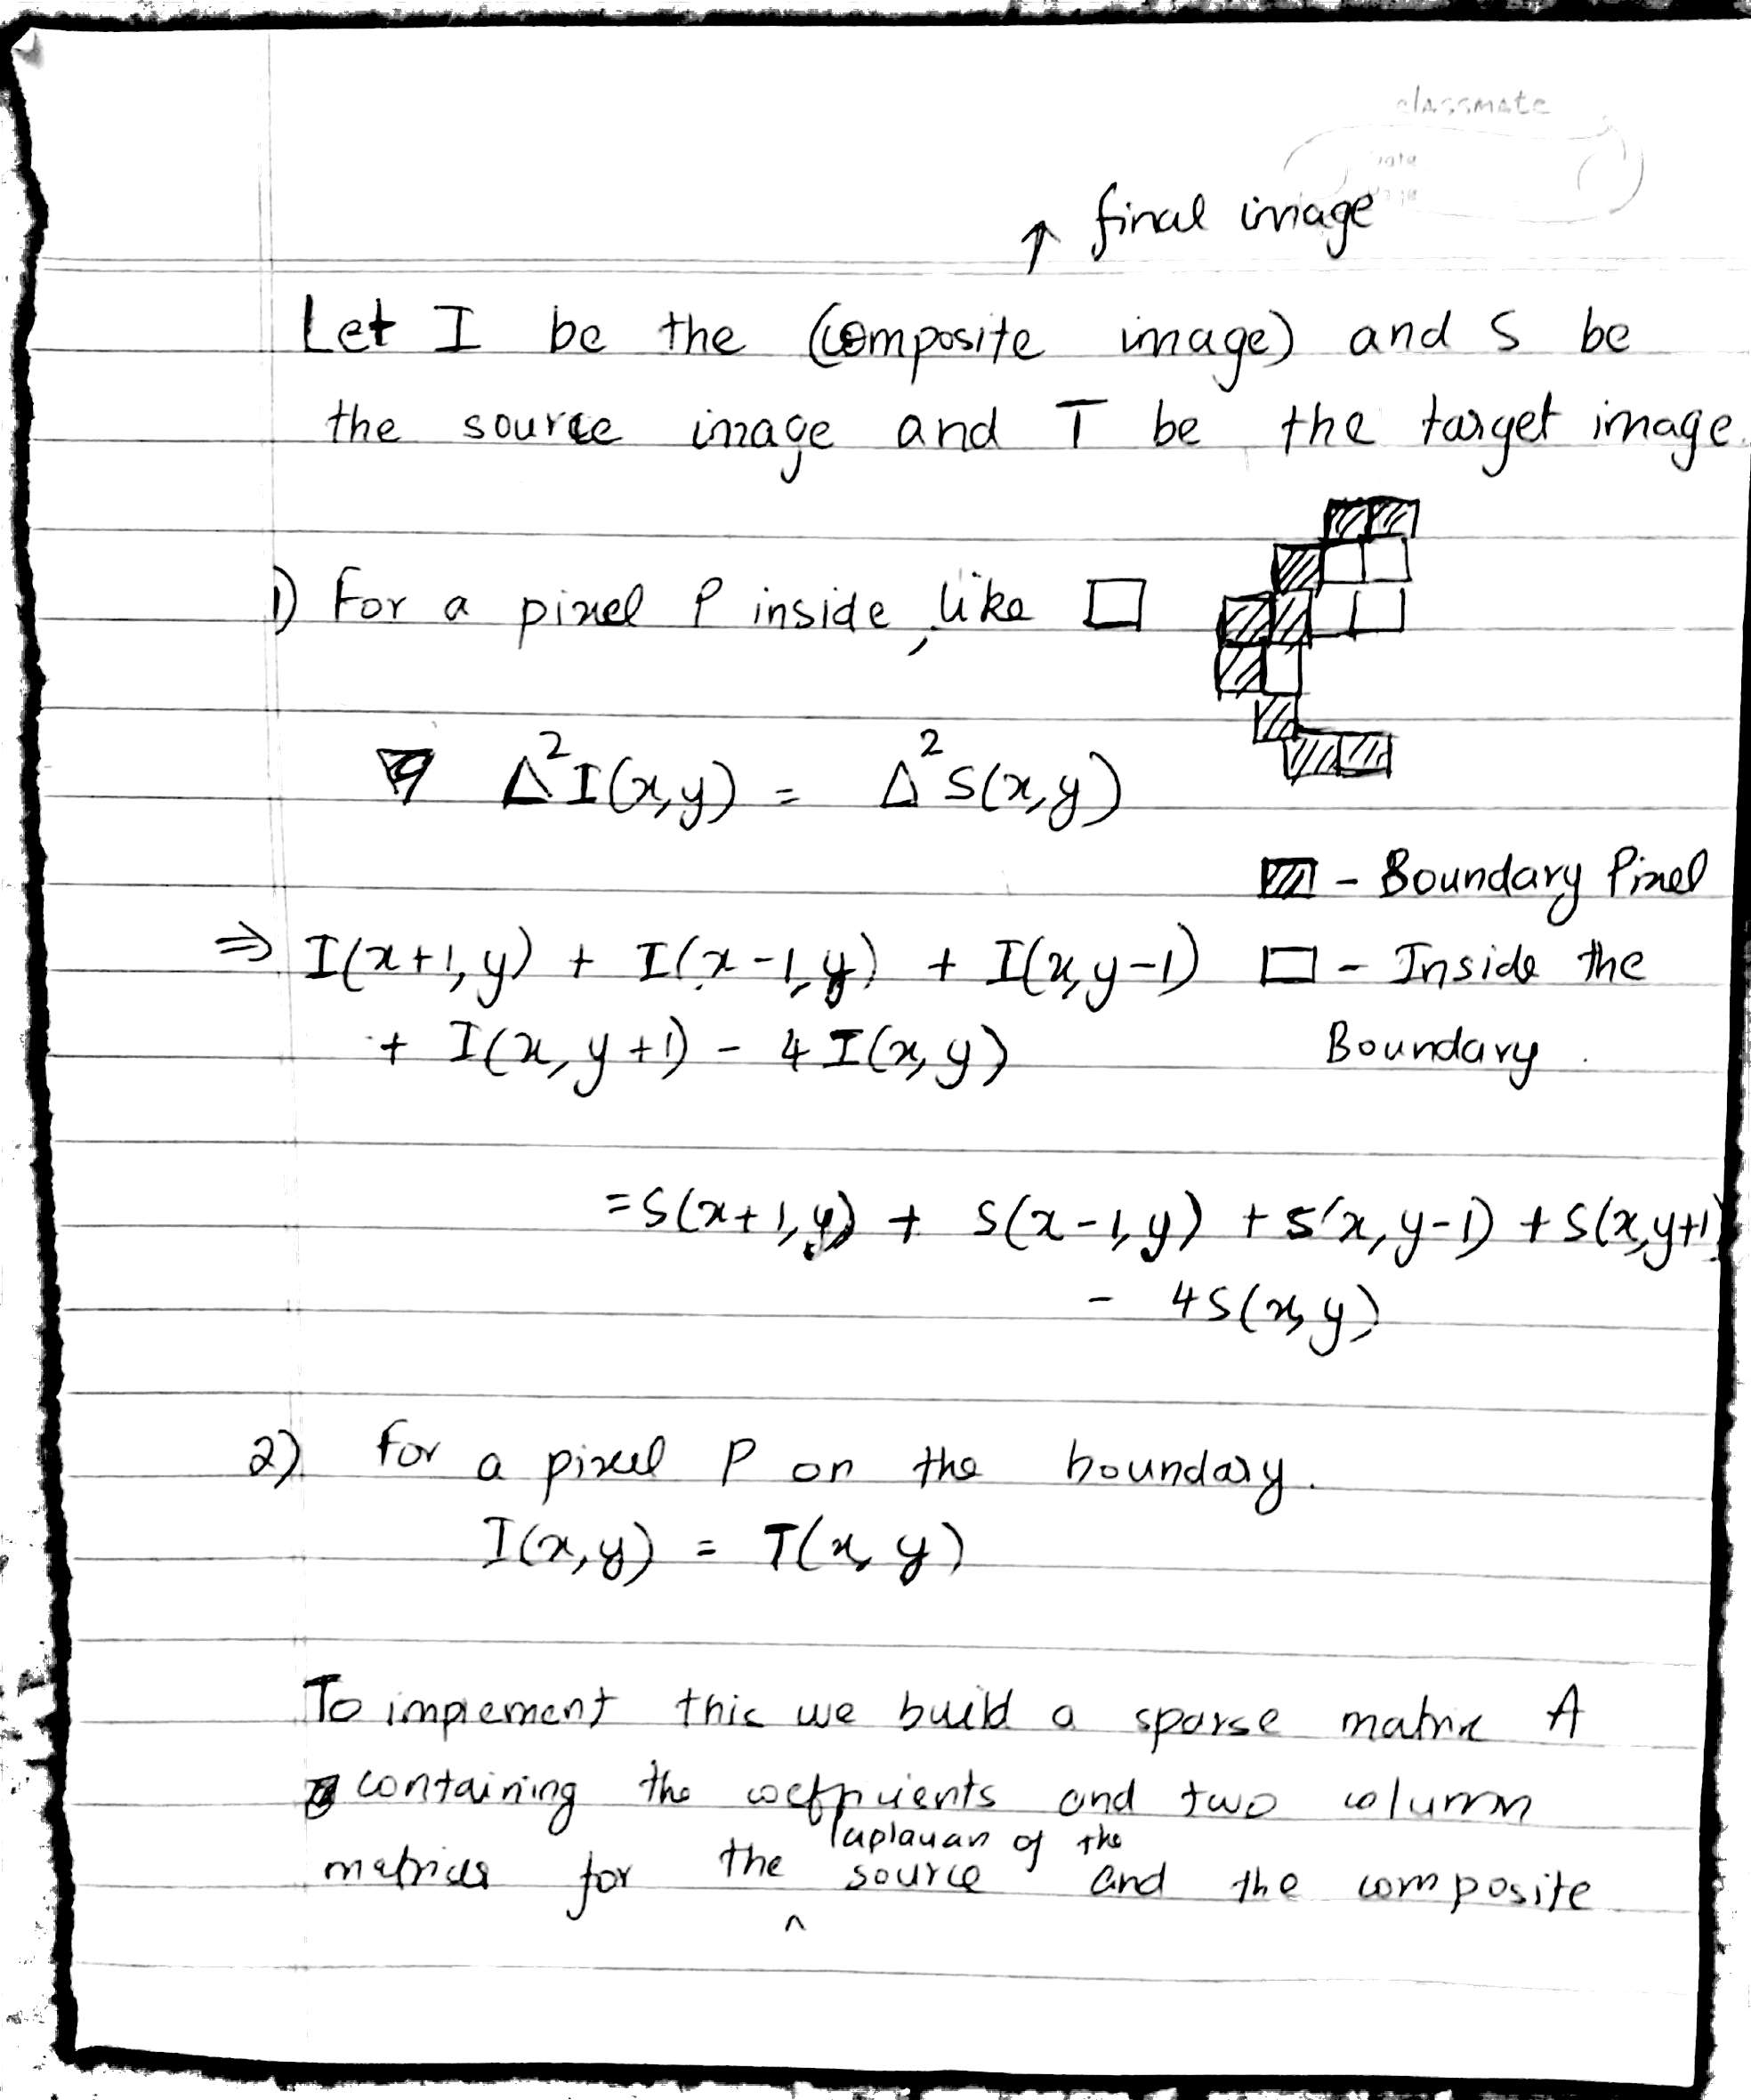 classmate
final image
Let I be the (composite image) and S be
the source image and T be the target image.
1) For a pixel P inside, like
Δ²I(x,y) = Δ²S(x,y)
- Boundary Pixel
⇒ I(x+1,y) + I(x-1,y) + I(x,y-1)
- Inside the
+ I(x,y+1) - 4I(x,y)
Boundary.
=S(x+1,y) + S(x-1,y) + S(x,y-1) + S(x,y+1)
- 4S(x,y)
2) For a pixel P on the boundary.
I(x,y) = T(x,y)
To implement this we build a sparse matrix A
containing the coefficients and two column
laplacian of the
matrices for the ^ source and the composite